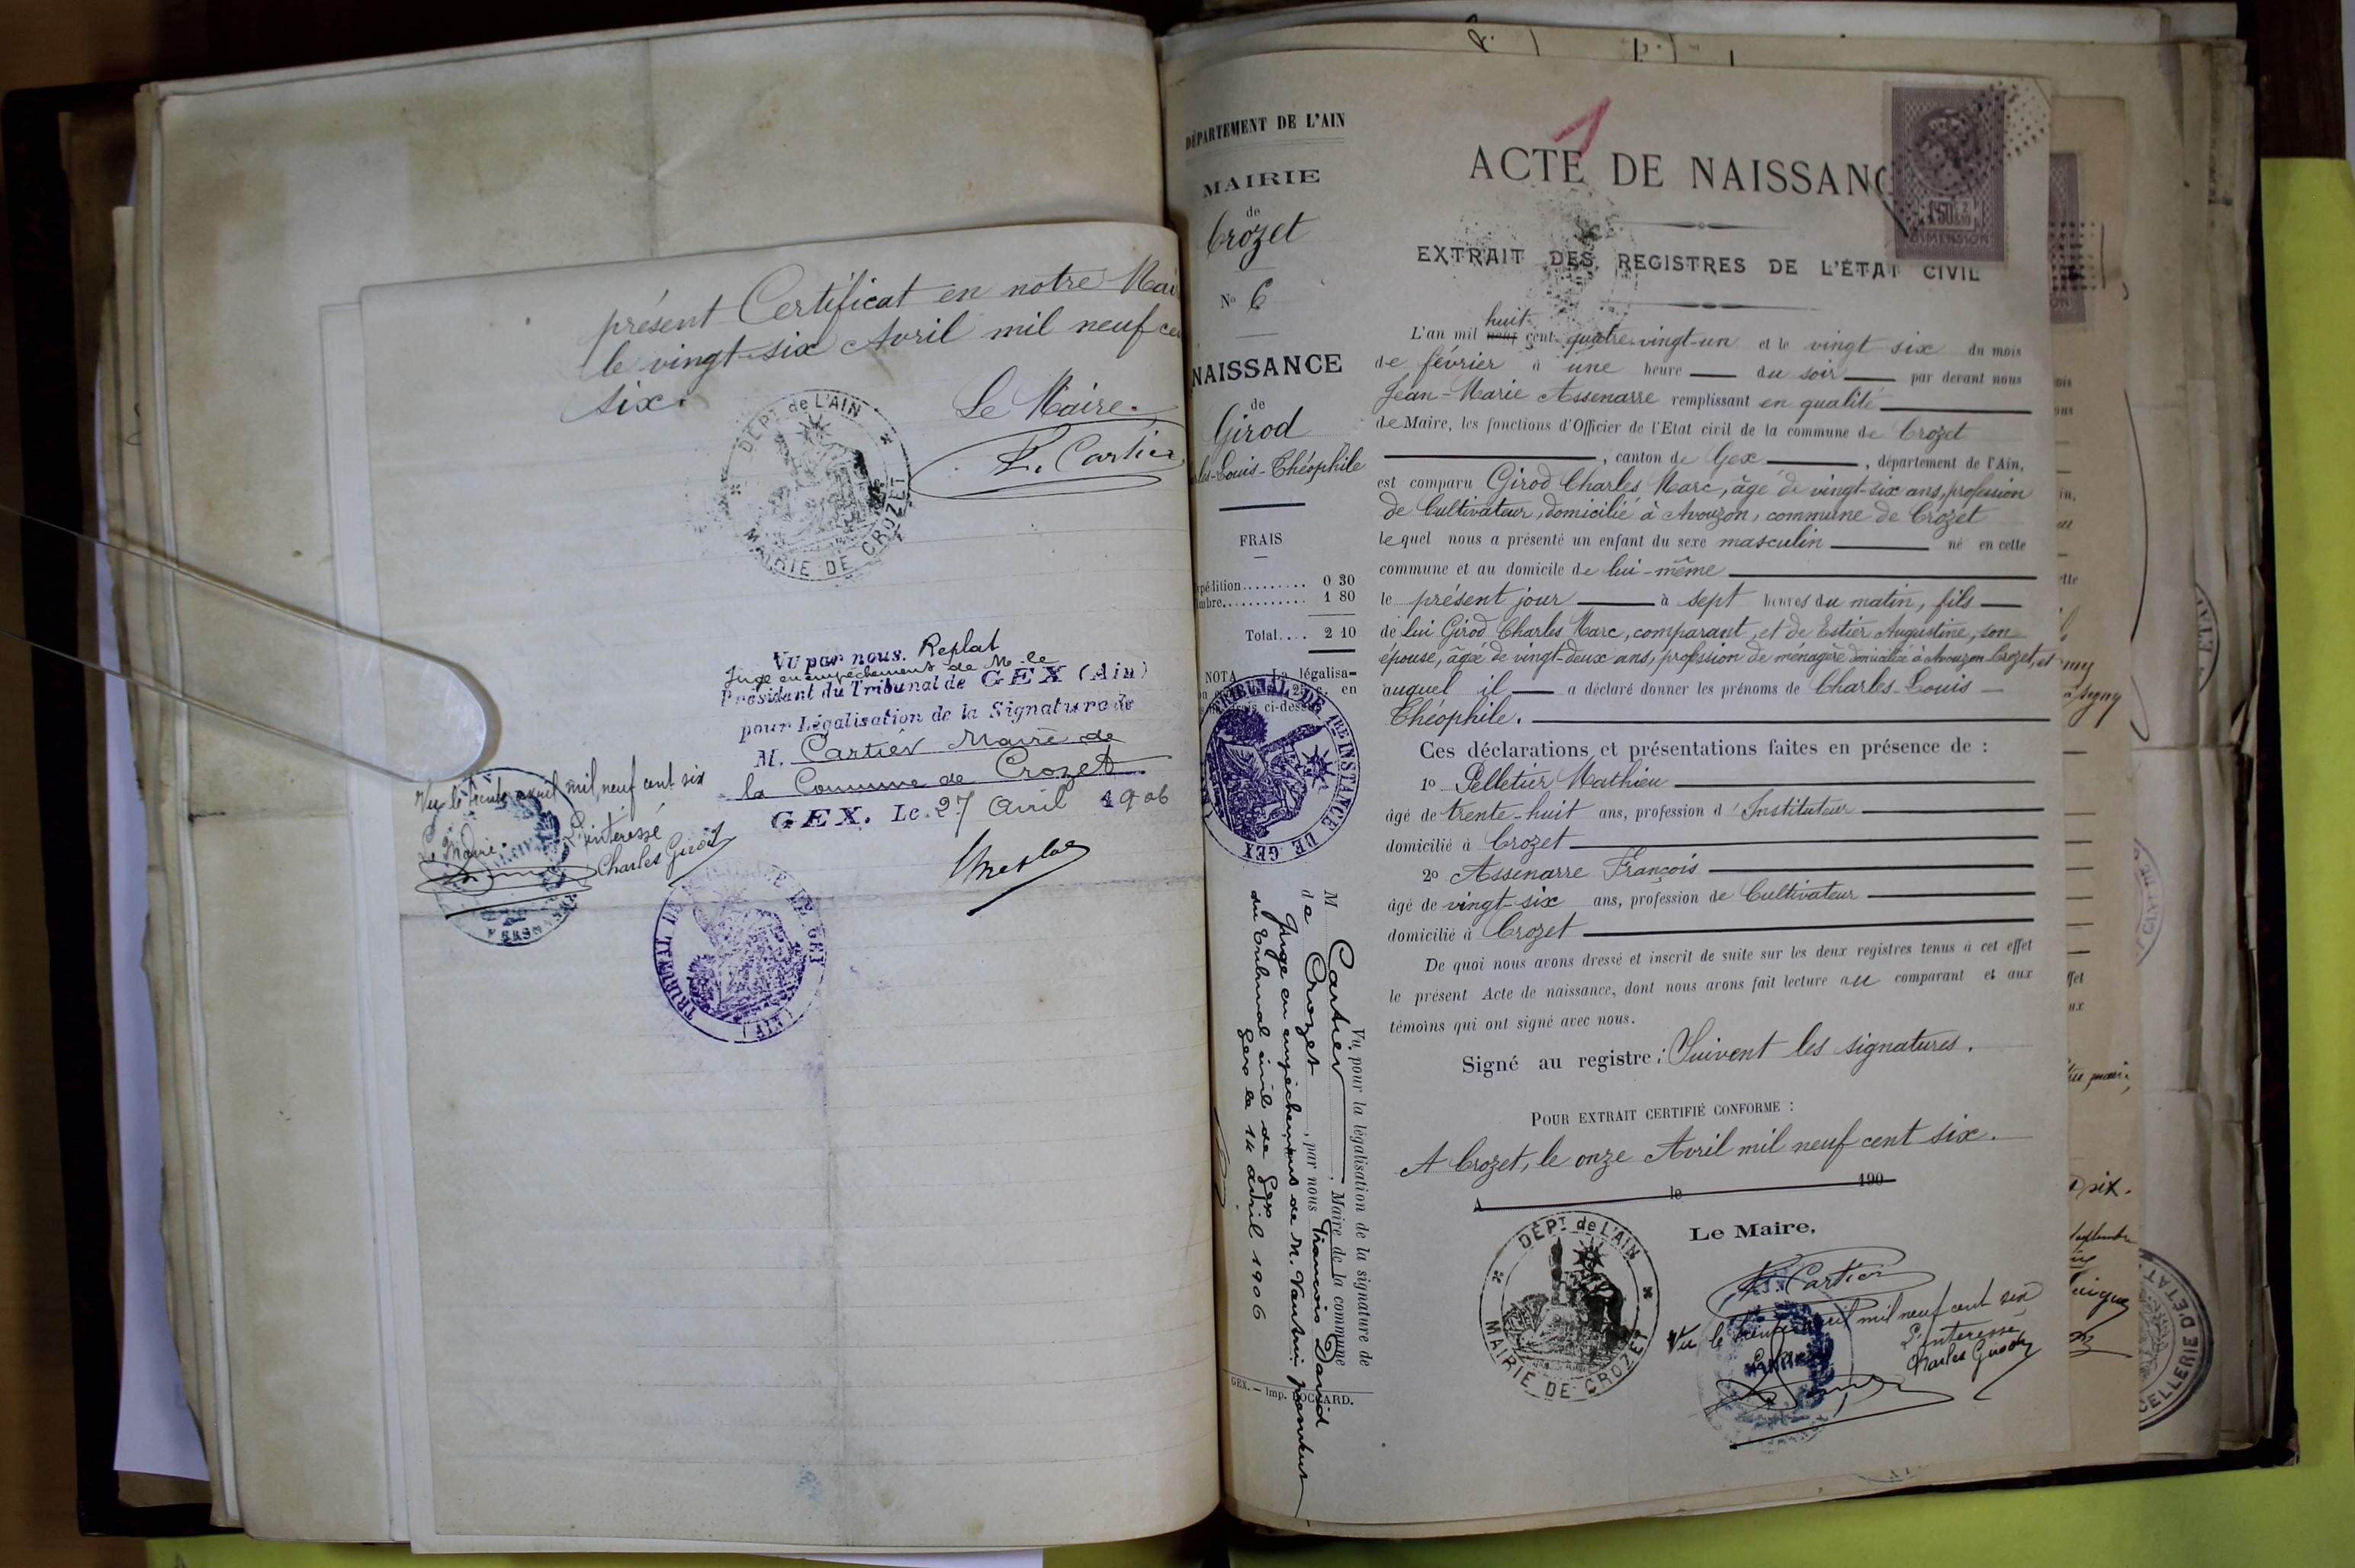 présent Certificat en notre Mai
le vingt-six Avril mil neuf ce
six.
Le Maire.
F. Cartier
DÉPT de L'AIN
MAIRIE DE CROZET
Vu par nous. Replat
Juge en empêchement de M. le
Président du Tribunal de GEX (Ain)
pour Légalisation de la Signature de
M. Cartier Maire de
la Commune de Crozet
GEX. Le 27 Avril 1906
Vu le trente avril mil neuf cent six
Le Maire. L'intéressé
Charles Girod
TRIBUNAL DE GEX (AIN)
DÉPARTEMENT DE L'AIN
MAIRIE
de
Crozet
No 6
NAISSANCE
de
Girod
rles-Louis-Théophile
FRAIS
xpédition......... 0 30
imbre............ 1 80
Total.... 2 10
NOTA La légalisa-
en
ci-dessus
TRIBUNAL DE 1RE INSTANCE DE GEX
Vu pour la légalisation de la signature de
M Cartier, Maire de la commune
de Crozet, par nous François David
Juge en empêchement de M.
du Tribunal civil de Gex
Gex le 14 avril 1906
GEX. — Imp. BOCCARD.
1
ACTE DE NAISSANC
1F50
DIMENSION
EXTRAIT DES REGISTRES DE L'ÉTAT CIVIL
huit
L'an mil neuf cent quatre-vingt-un et le vingt six du mois
de février à une heure du soir par devant nous
Jean-Marie Assenarre remplissant en qualité
de Maire, les fonctions d'Officier de l'Etat civil de la commune de Crozet
, canton de Gex, département de l'Ain,
est comparu Girod Charles Marc, âgé de vingt-six ans, profession
de Cultivateur, domicilié à Avouzon, commune de Crozet
lequel nous a présenté un enfant du sexe masculin né en cette
commune et au domicile de lui-même
le présent jour à sept heures du matin, fils
de lui Girod Charles Marc, comparant, et de Estier Augustine, son
épouse, âgée de vingt-deux ans, profession de ménagère domiciliée à Avouzon-Crozet, et
auquel il a déclaré donner les prénoms de Charles-Louis
Théophile.
Ces déclarations et présentations faites en présence de :
1o Pelletier Mathieu
âgé de trente-huit ans, profession d'Instituteur
domicilié à Crozet
2o Assenarre François
âgé de vingt-six ans, profession de Cultivateur
domicilié à Crozet
De quoi nous avons dressé et inscrit de suite sur les deux registres tenus à cet effet
le présent Acte de naissance, dont nous avons fait lecture au comparant et aux
témoins qui ont signé avec nous.
Signé au registre : Suivent les signatures.
POUR EXTRAIT CERTIFIÉ CONFORME :
A Crozet, le onze Avril mil neuf cent six.
A le 190
Le Maire,
DÉPT de L'AIN
MAIRIE DE CROZET
F. Cartier
Vu le trente avril mil neuf cent six
L'intéressé
Charles Girod